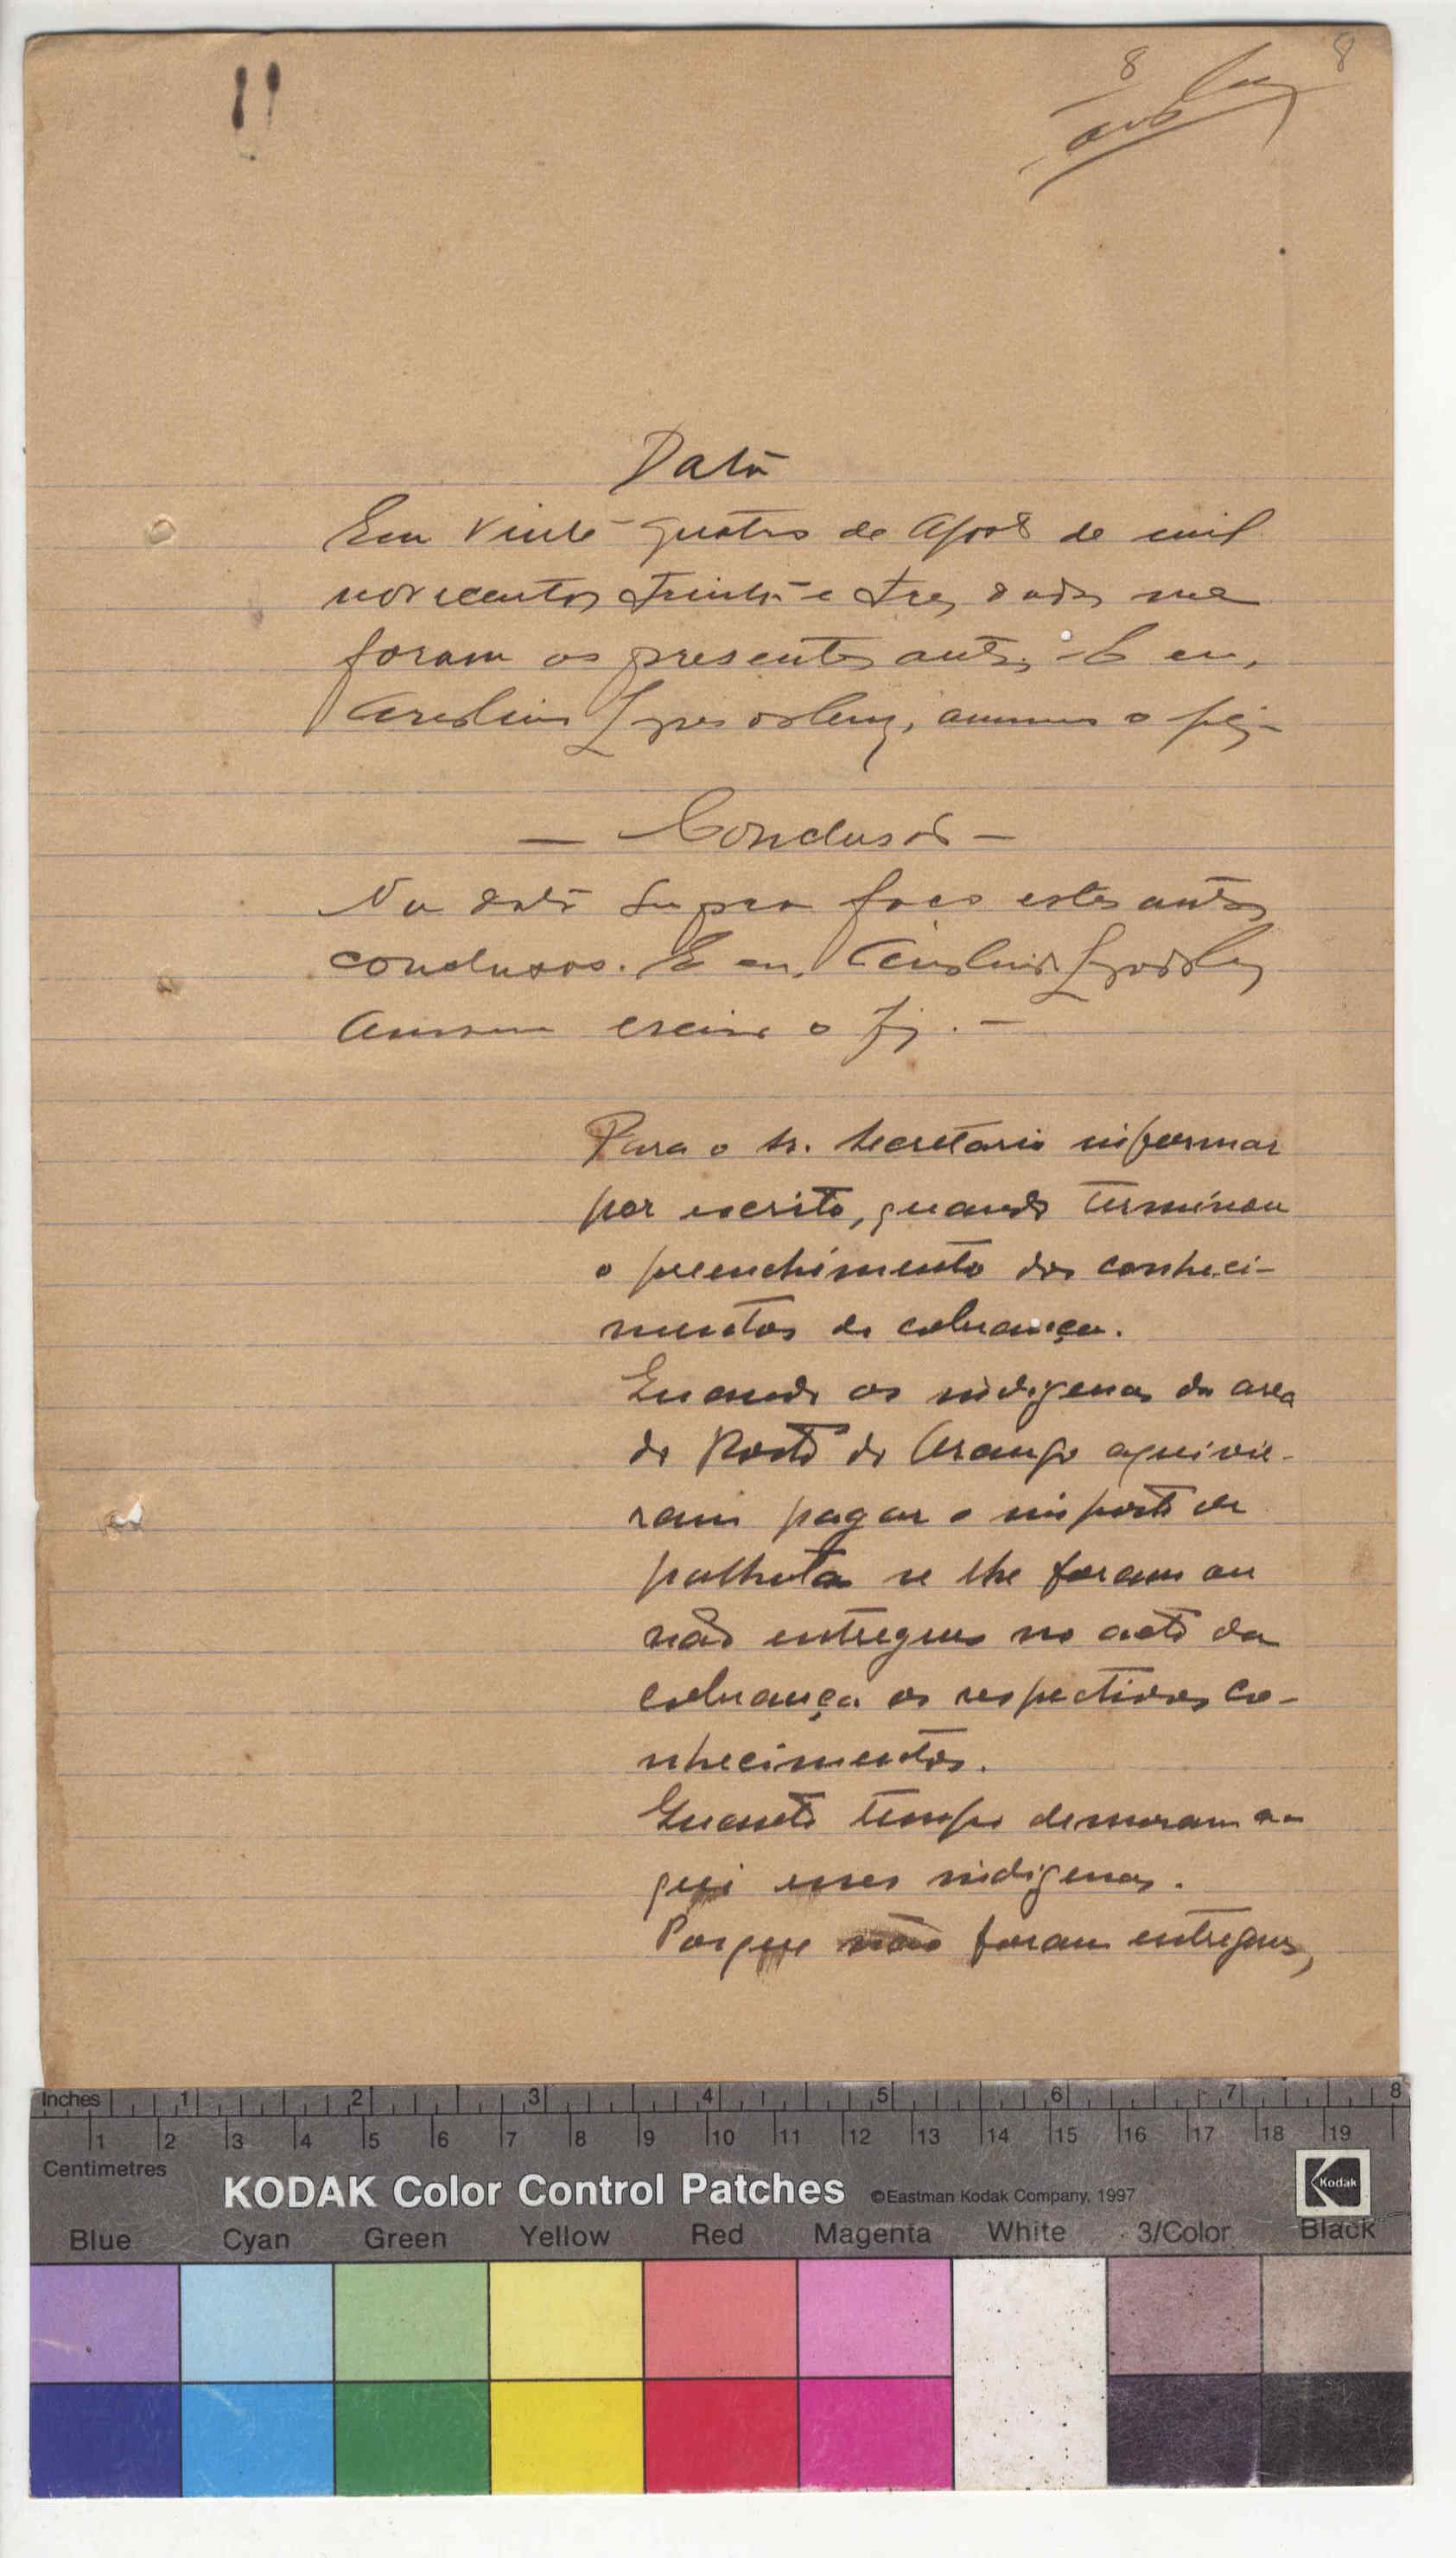 8
8
Data
Em vinte quatro de Abril de mil
novecentos trinta e tres, dados me
foram os presentes autos. E eu,
o fiz
— Conclusão —
Na data supra faço estes autos
conclusos. E eu,
o fiz. —
Para o sr. secretario informar
por escrito, quando terminou
o preenchimento dos conheci-
mentos de cobrança.
Quando os indigenas da area
do Posto do aqui vie-
ram pagar o imposto de
palhota se lhe foram ou
não entregues no acto da
cobrança os respectivos co-
nhecimentos.
Quanto tempo demoram a-
qui esses indigenas.
Porque não foram entregues,
Inches 1 2 3 4 5 6 7 8
1 2 3 4 5 6 7 8 9 10 11 12 13 14 15 16 17 18 19
Centimetres
KODAK Color Control Patches ©Eastman Kodak Company, 1997 Kodak
Blue Cyan Green Yellow Red Magenta White 3/Color Black